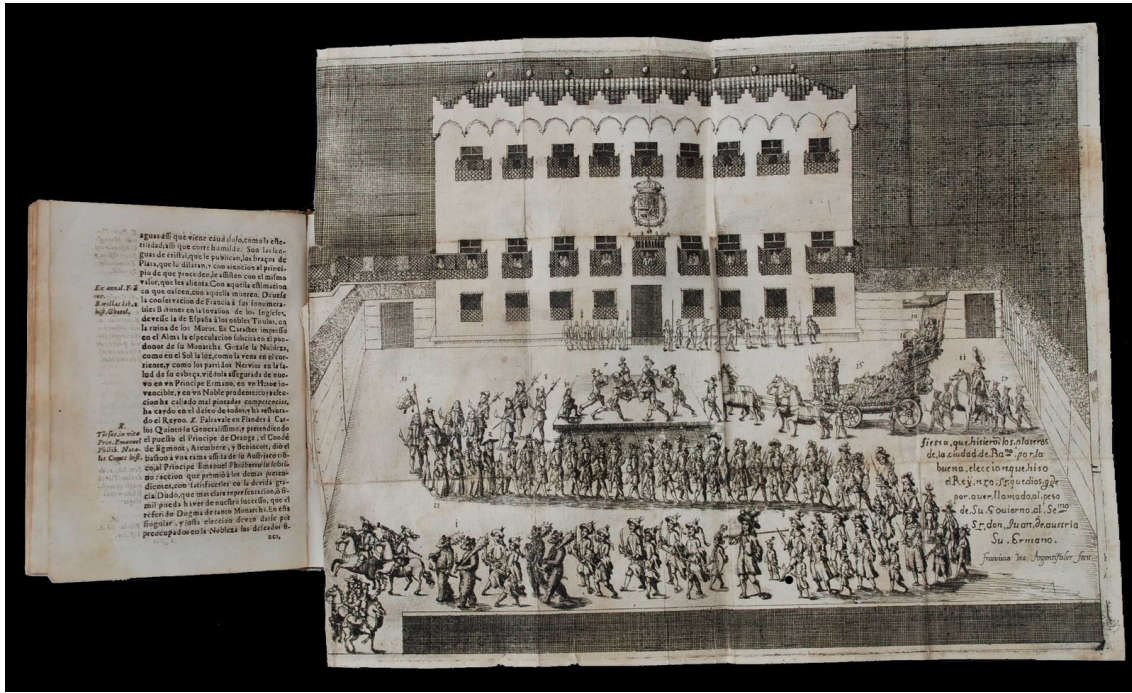 aguas assi que viene caudaloso, como la este-
rilidad, assi que corre humilde. Son las len-
guas de cristal, que le publican, los braços de
Plata, que le dilatan, y con atencion al princi-
pio de que proceden, le assisten con el mismo
valor, que les alienta. Con aquella estimacion
en que nacen, con aquella mueren. Devese
la conservacion de Francia à los innumera-
bles Bitones en la invasion de los Ingleses,
devese la de España à los nobles Titulos, en
la ruina de los Moros. Es Caracter impresso
en el Alma la especulacion solicita en el pun-
donor de su Monarcha. Gozase la Nobleza,
como en el Sol la luz, como la vena en el cor-
riente, y como los partidos Nervios en la sa-
lud de su cabeça, viédola assegurada de nue-
vo en vn Principe Ermano, en vn Heroe in-
vencible, y en vn Noble prudente; cuya elec-
cion ha callado mal pintadas competencias,
ha caydo en el deseo de todos, y ha restaura-
do el Reyno. X. Faltavale en Flandes à Car-
los Quinto su Generalissimo, y pretendiendo
el puesto el Principe de Orange, el Conde
de Egmont, Aremberg, y Benincort, dió el
baston à vna rama assida de su Austriaco tró-
co, al Principe Emanuel Philiberto su sobri-
no: accion que premió à los demas preten-
dientes, con satisfacerles en la devida gra-
cia. Dudo, que mas clara representacion, ò si-
mil pueda haver de nuestro sucesso, que el
referido Dogma de tanto Monarcha. En esta
singular, y justa eleccion deven darse por
preocupados en la Nobleza los deseados fi-
Ex annal. F.
Borillas lib. 2
hist. Ghotol.
X.
Torsus, in vita
Prin. Emanuel
Philib. Nata-
lis Comes hist.
fiesta, que hisieron los plateros
de la ciudad de Ra.na por la
buena, eleccion que hiso
el Rey nro. Sr. que dios gde
por auer llamado, al peso
de Su Gouierno, al Se.mo
Sr. don, Juan, de austria
Su Ermano.
francisco Via Argentifaber fecit